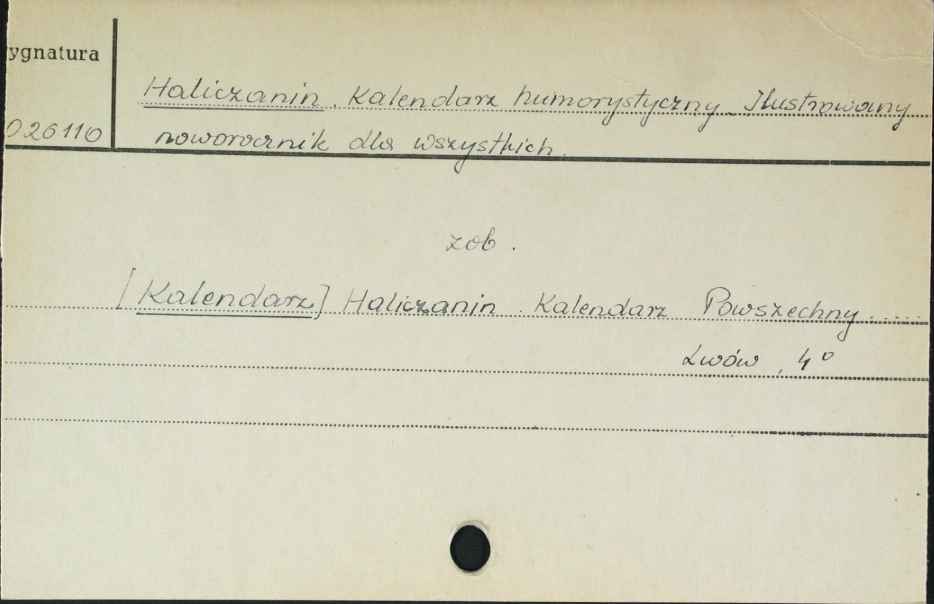 ygnatura
Haliczanin. Kalendarz humorystyczny Ilustrowany
026110
noworocznik dla wszystkich.
zob.
[Kalendarz] Haliczanin. Kalendarz Powszechny
Lwów, 4°